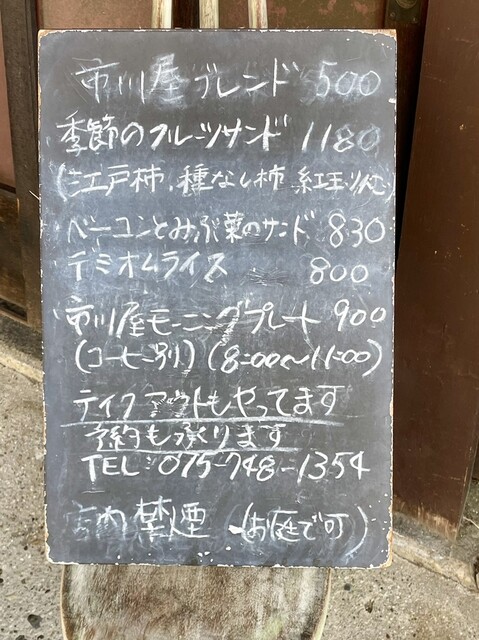 市川屋ブレンド 500
季節のフルーツサンド 1180
(江戸柿、種なし柿 紅玉りんご)
ベーコンとみぶ菜のサンド 830
デミオムライス 800
市川屋モーニングプレート 900
(コーヒー別) (8:00〜11:00)
テイクアウトもやってます
予約も承ります
TEL:075-748-1354
店内禁煙 (お庭で可)